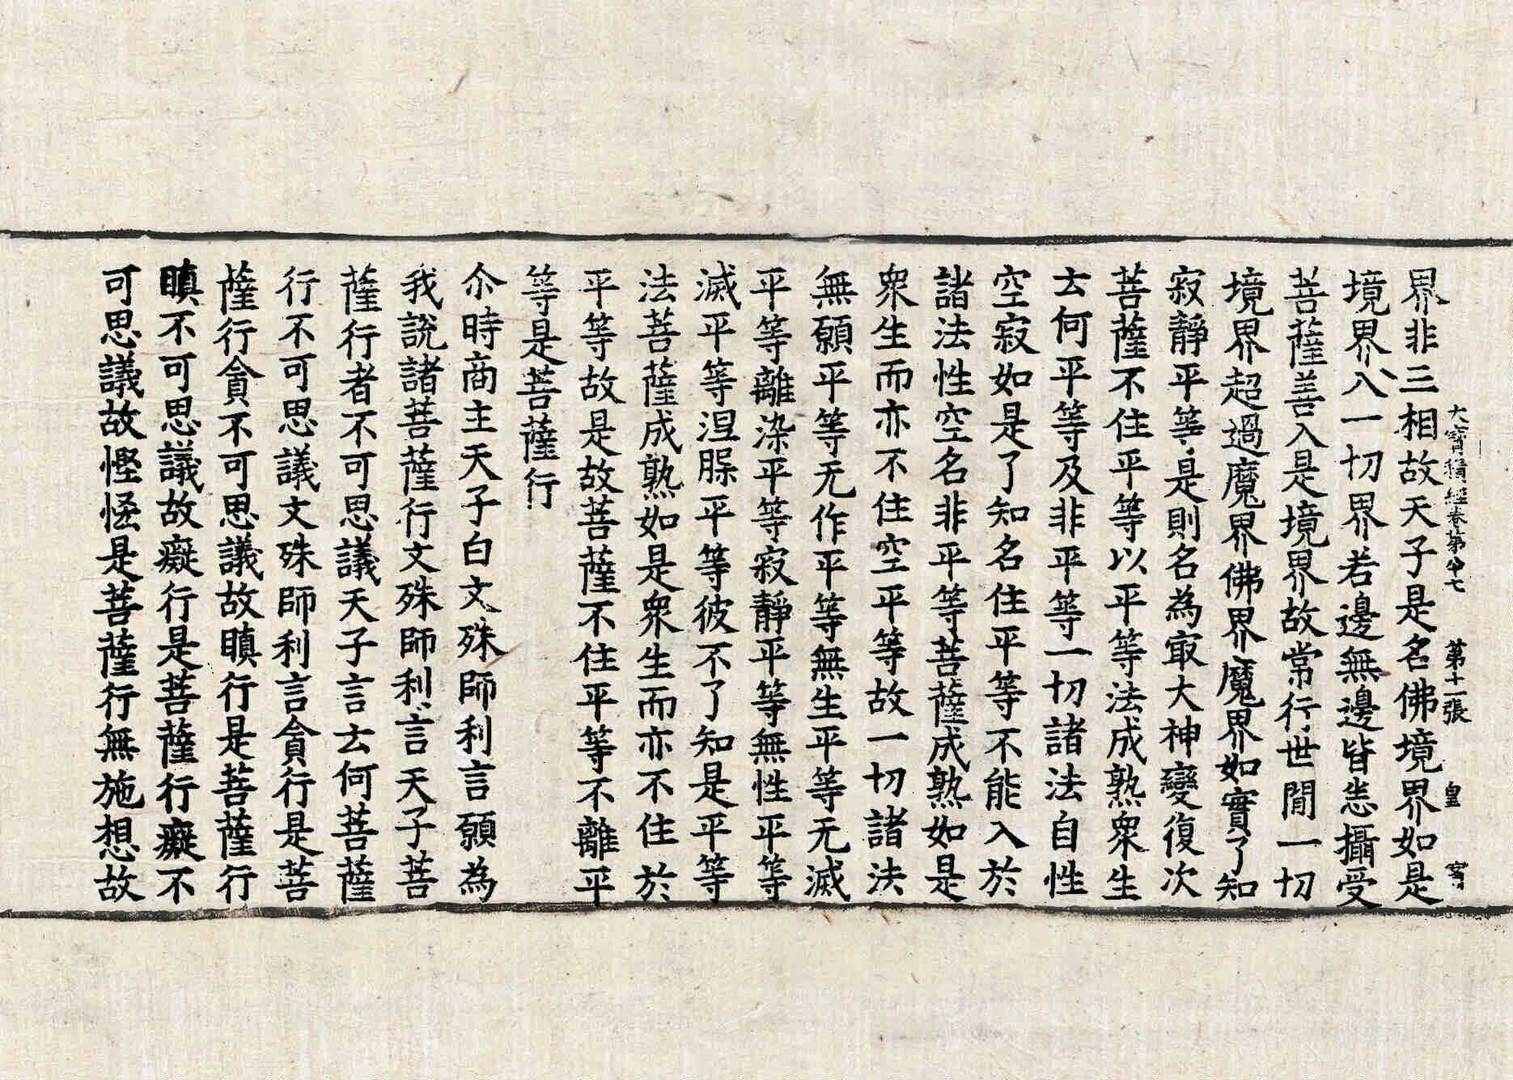 大寶積經卷第七　第十一張　皇
界非三相故天子是名佛境界如是
境界入一切界若邊無邊皆悉攝受
菩薩善入是境界故常行世間一切
境界超過魔界佛界魔界如實了知
寂靜平等是則名為冣大神變復次
菩薩不住平等以平等法成熟衆生
云何平等及非平等一切諸法自性
空寂如是了知名住平等不能入於
諸法性空名非平等菩薩成熟如是
衆生而亦不住空平等故一切諸法
無願平等无作平等無生平等无滅
平等離染平等寂靜平等無性平等
滅平等涅槃平等彼不了知是平等
法菩薩成熟如是衆生而亦不住於
平等故是故菩薩不住平等不離平
等是菩薩行
尒時商主天子白文殊師利言願為
我說諸菩薩行文殊師利言天子菩
薩行者不可思議天子言云何菩薩
行不可思議文殊師利言貪行是菩
薩行貪不可思議故瞋行是菩薩行
瞋不可思議故癡行是菩薩行癡不
可思議故慳恡是菩薩行無施想故